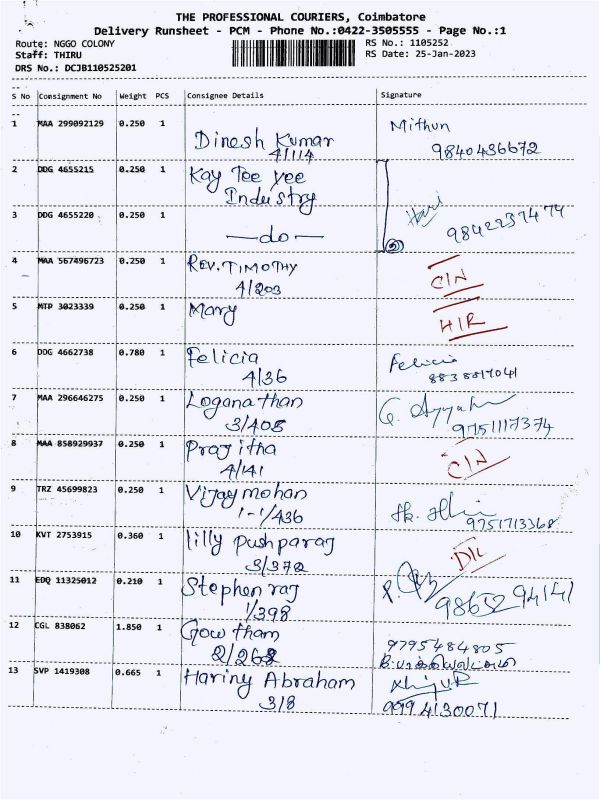 THE PROFESSIONAL COURIERS, Coimbatore
Delivery Runsheet - PCM - Phone No.:0422-3505555 - Page No.:1
Route: NGGO COLONY RS No.: 1105252
Staff: THIRU RS Date: 25-Jan-2023
DRS No.: DCJB110525201
S No Consignment No Weight PCS Consignee Details Signature
1 MAA 299092129 0.250 1 Dinesh Kumar Mithun
4/114 9840436672
2 DDG 4655215 0.250 1 Kay Tee yee
Industry
3 DDG 4655220 0.250 1 —do— Hari 9842237474
4 MAA 567496723 0.250 1 REV.TIMOTHY CIN
4/203
5 MTP 3023339 0.250 1 Mary HIR
6 DDG 4662738 0.780 1 Felicia Felicia
4/36 8838817041
7 MAA 296646275 0.250 1 Loganathan
3/405 9751117374
8 MAA 858929937 0.250 1 Prajitha CIN
4/141
9 TRZ 45699823 0.250 1 Vijaymohan
1-1/436 9751713368
10 KVT 2753915 0.360 1 lilly pushparaj D/L
3/372
11 EDQ 11325012 0.210 1 Stephenraj
1/398 9865294141
12 CGL 838062 1.850 1 Gowtham 9795484805
2/268
13 SVP 1419308 0.665 1 Hariny Abraham
3/8 9994130071